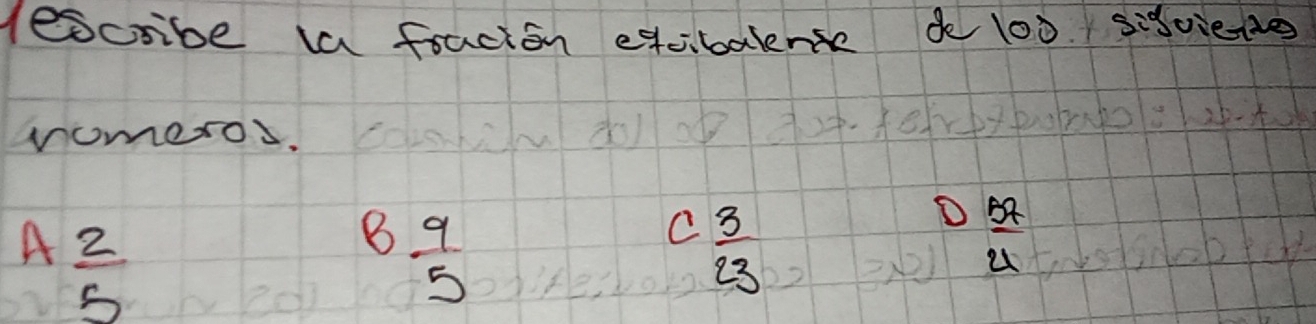 1escribe la fración equibalente de los siguientes
numeros.
A 2/5 B 9/5 C 3/23 D 57/21